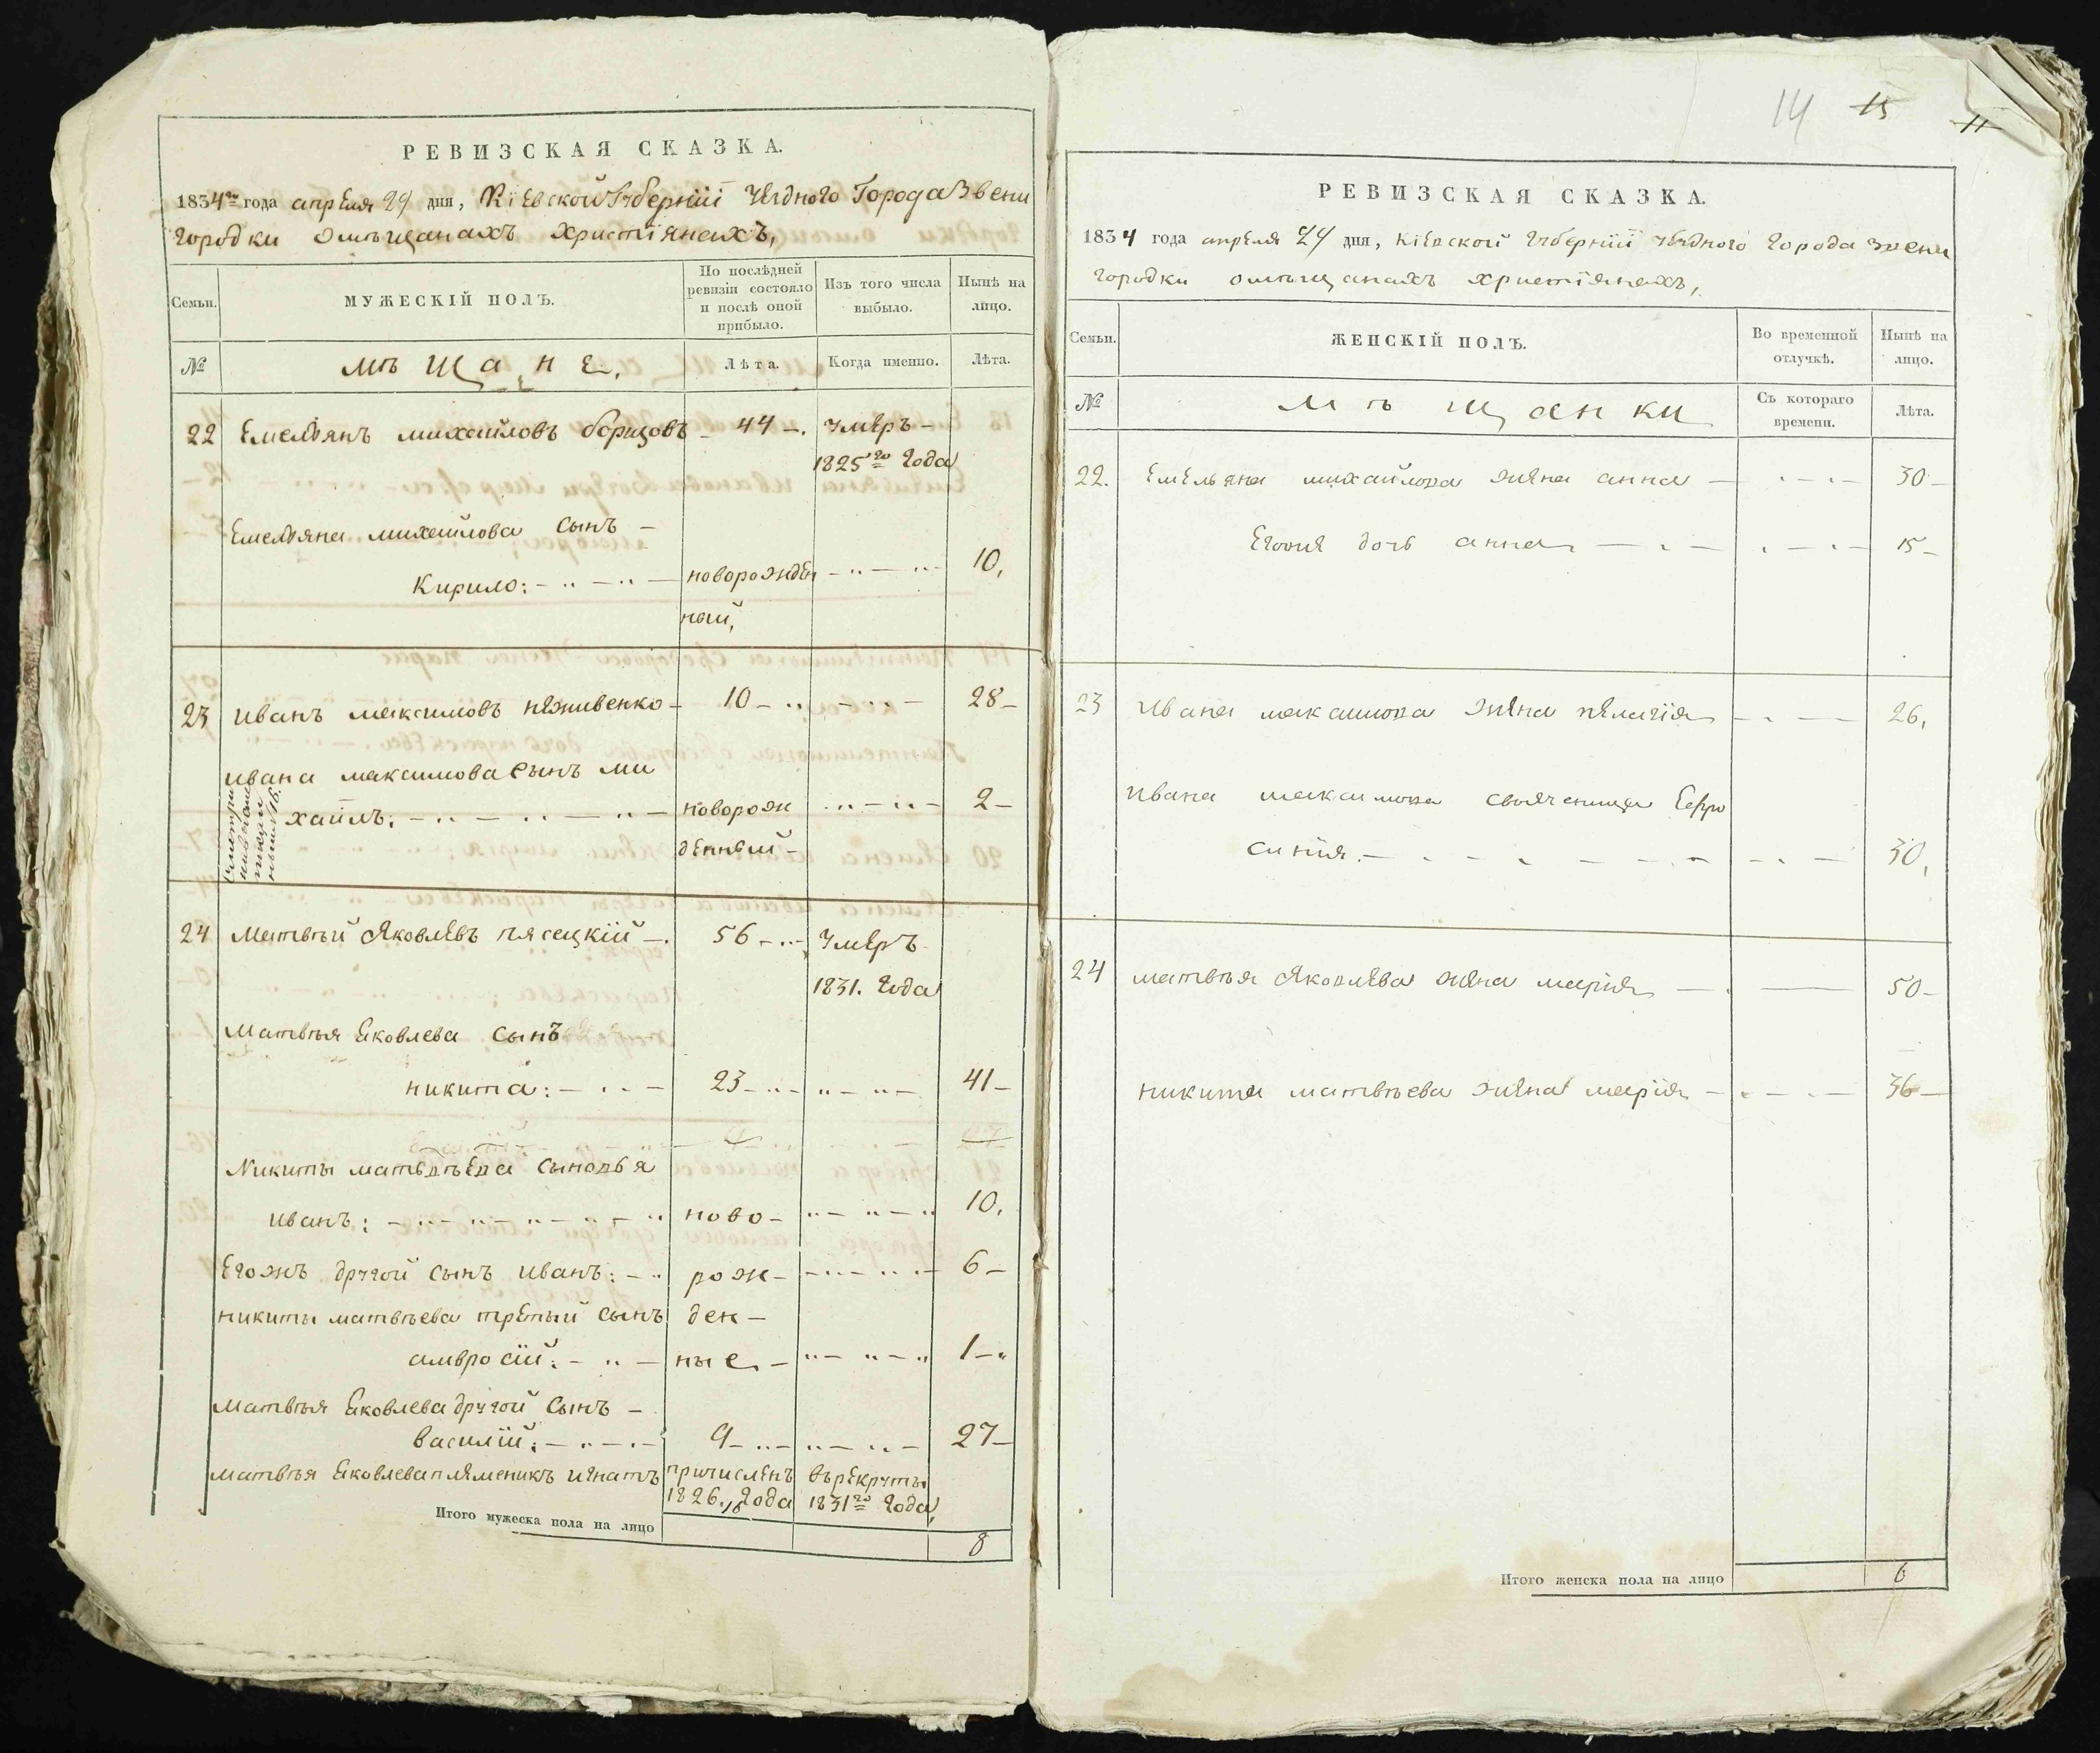 РЕВИЗСКАЯ СКАЗКА.
1834го года апреля 29 дня, Кіевской Губерніи уѣдного Города Звени
городки омѣщанахъ христіянахъ,
Семьи.
МУЖЕСКІЙ ПОЛЪ.
По послѣдней ревизіи состояло и послѣ оной прибыло.
Изъ того числа выбыло.
Нынѣ на лицо.
№
мѣщане,
Лѣта.
Когда именно.
Лѣта.
22 Емельянъ михайловъ борщовъ 44 умеръ
1825го года
Емельяна михайлова сынъ
Кирило: новорожден 10,
ный,
23 иванъ максимовъ неживенко 10 28
ивана максимова сынъ ми
хайлъ: новорож 2
денный
24 Матвѣй Яковлевъ пясецкій 56 умеръ
1831. года
Матвѣя Яковлева сынъ
никита: 23 41
Никиты матвѣева сыновья
иванъ: ново 10.
Егожъ другой сынъ иванъ: рож 6
никиты матвѣева третый сынъ ден
амвросій: ные 1
матвѣя Яковлева другой сынъ
василій: 9 27
матвѣя Яковлева племеникъ игнатъ причисленъ върекруты
1826, года 1831го года,
Итого мужеска пола на лицо
8
14 15 11
РЕВИЗСКАЯ СКАЗКА.
1834 года апреля 29 дня, Кіевской Губерніи уѣдного города звени
городки омѣщанахъ христіянахъ,
Семьи.
ЖЕНСКІЙ ПОЛЪ.
Во временной отлучкѣ.
Нынѣ на лицо.
№
мѣщанки
Съ котораго времени.
Лѣта.
22. Емельяна михайлова жена анна 30
Егоия дочь анна 15
23 ивана максимова жена пелагія 26,
ивана максимова своячениця Ефро
синія 30,
24 матвѣя Яковлева жена марія 50
никиты матвѣева жена марія 36
Итого женска пола на лицо
6